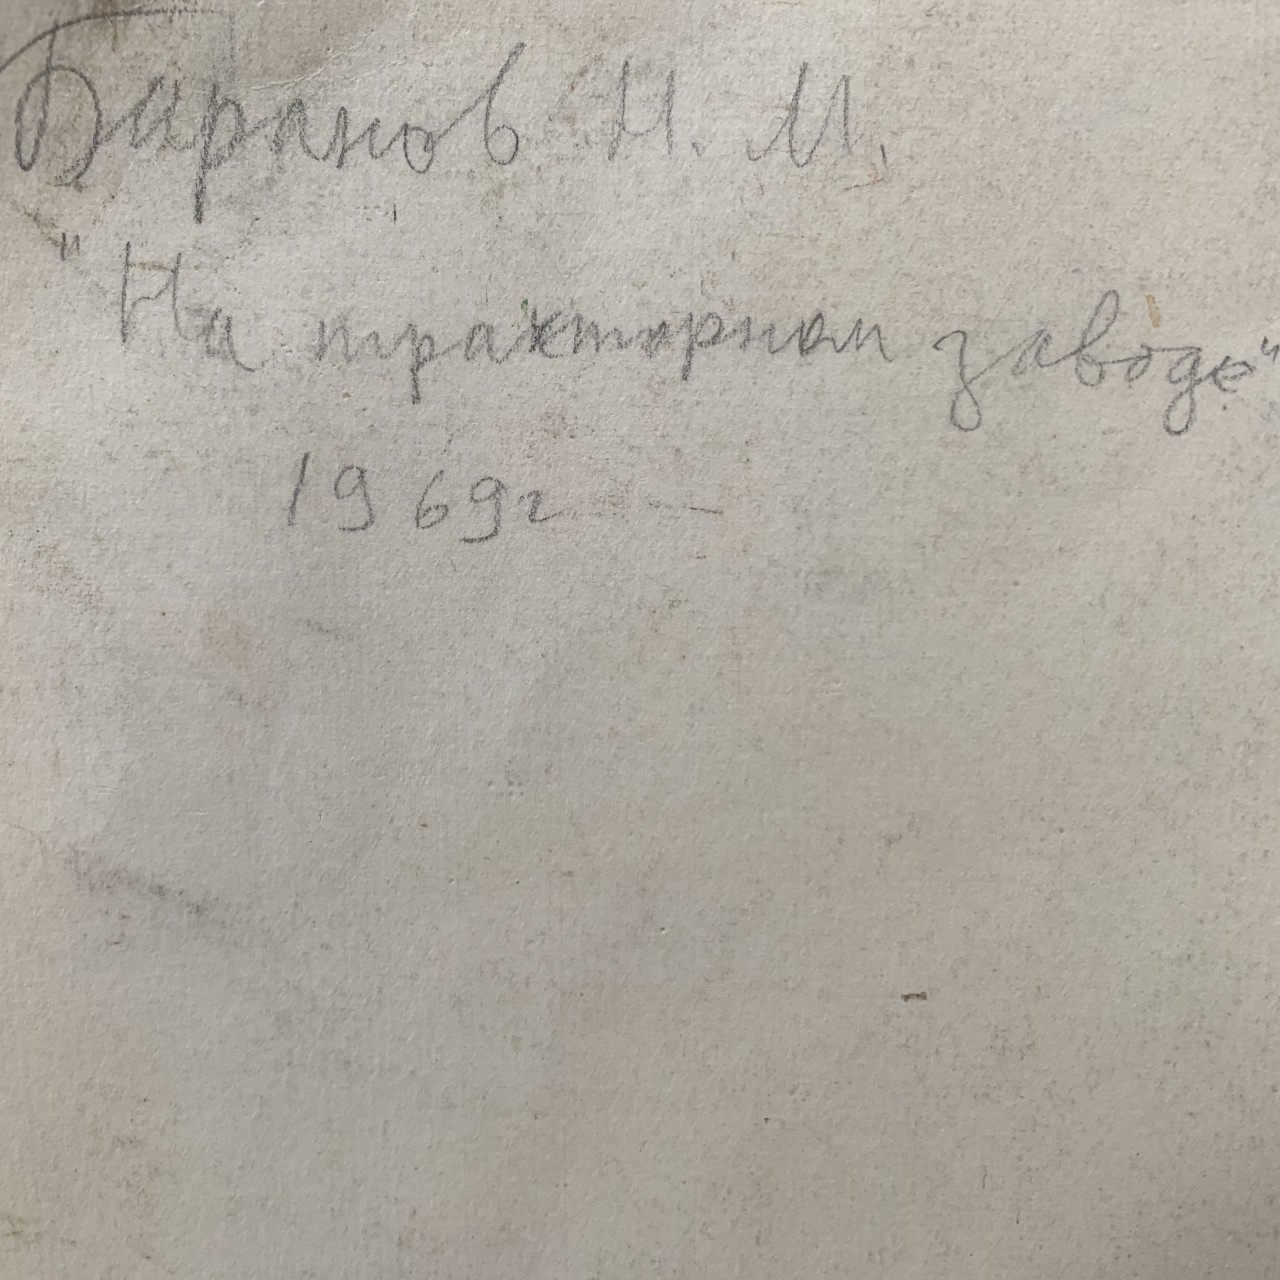 Баранов Н. М.
"На тракторном заводе"
1969г